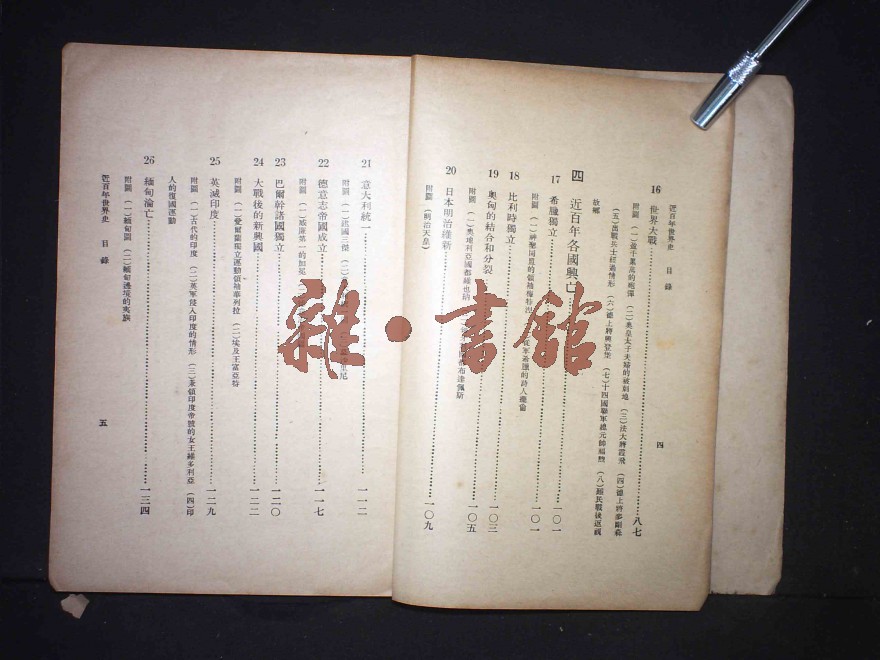 近百年世界史 目錄
四
16 世界大戰……八七
附圖 (一)並十萬高的砲彈 (二)奧皇太子夫婦的被刺地 (三)法大將霞飛 (四)德上將多爾
(五)出戰兵士經過情形 (六)德上將興登堡 (七)十四國聯軍總元帥福煦 (八)難民戰後返
故鄉
四 近百年各國興亡……一〇一
17 希臘獨立……一〇一
附圖 (一)神聖同盟的領袖梅特 從軍希臘的詩人
18 比利時獨立……一〇一
19 奧匈的結合和分裂……一〇三
附圖 (一)奧地利亞國都維也納 布達佩斯……一〇五
20 日本明治維新……一〇九
附圖 (明治天皇)
21 意大利統一……一一二
附圖 (一)建國三傑 (二)
22 德意志帝國成立……一一七
附圖 (一)威廉第一的加冕
23 巴爾幹諸國獨立……一二〇
24 大戰後的新興國……一二二
附圖 (一)愛爾蘭獨立運動領袖華列拉 (二)埃及王富亞特
25 英滅印度……一二九
附圖 (一)古代的印度 (二)英軍侵入印度的情形 (三)兼領印度帝號的女王維多利亞 (四)印
人的復國運動
26 緬甸淪亡……一三四
附圖 (一)緬甸圖 (二)緬甸邊境的夷族
近百年世界史 目錄
五
雜·書館